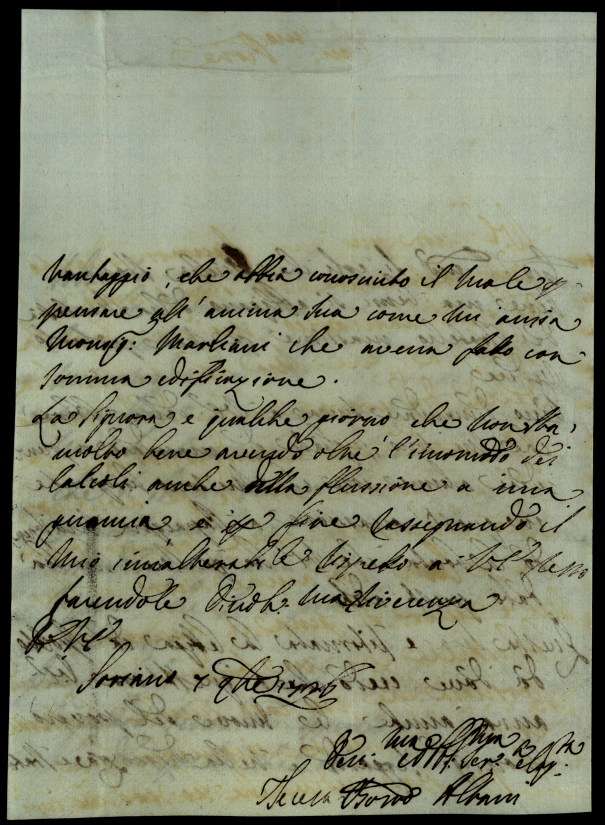 vantaggio, che abbia conosciuto il male p
pensare all'anima sua come mi avisa
Monsig: Marliani che aveva fatto con
somma edificazione.
La Signora è qualche giorno che non sta
molto bene avendo oltre l'incomodo dei
calcoli anche della flussione a una
guancia e p fine rassegnando il
mio inalterabile rispetto a
facendole riverenza
Soriano 7
Teresa Albani